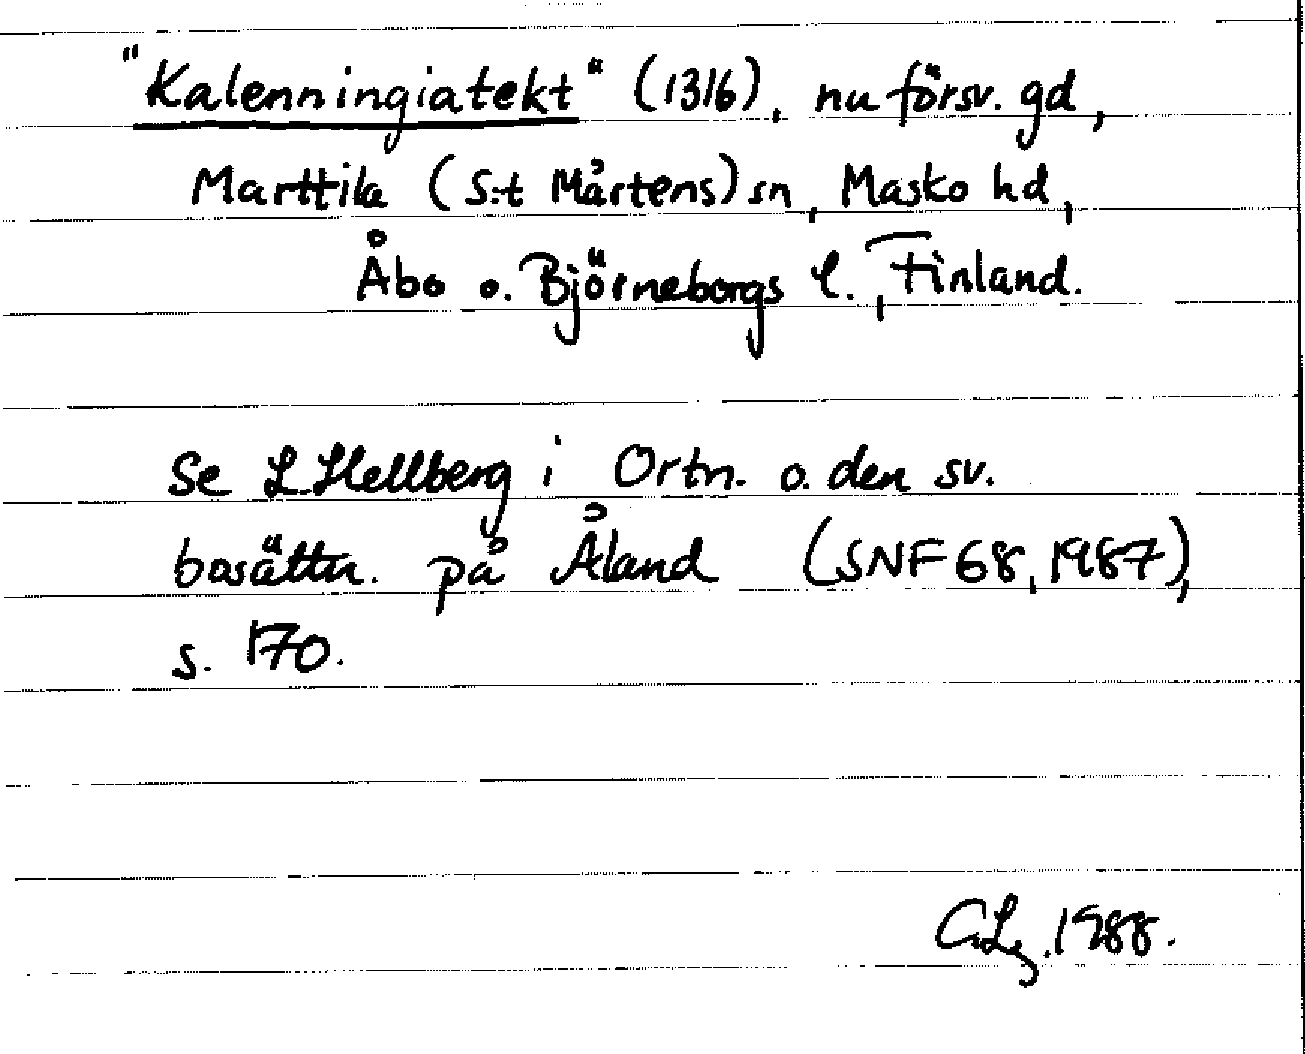 "Kalenningiatekt" (1316), nu försv. gd,
Marttila (S:t Mårtens) sn, Masko hd,
Åbo o. Björneborgs l., Finland.
Se L. Hellberg i Ortn. o. den sv.
bosättn. på Åland (SNF 68, 1987),
s. 170.
1988.